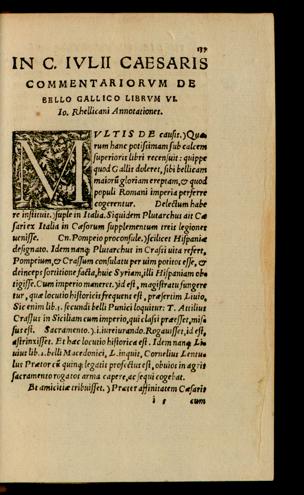 137
IN C. IVLII CAESARIS
COMMENTARIORVM DE
BELLO GALLICO LIBRVM VI.
Io. Rhellicani Annotationes.
MVLTIS DE causis.) Qua
rum hanc potissimam sub calcem
superioris libri recensuit: quippe
quod Gallis doleret, sibi bellicam
maiorū gloriam ereptam, & quod
populi Romani imperia perferre
cogerentur. Delectum habe
re instituit.) suple in Italia. Siquidem Plutarchus ait Cæ
sari ex Italia in Cæsorum supplementum treis legiones
uenisse. Cn. Pompeio proconsule.) scilicet Hispaniæ
designato. Idem nanq; Plutarchus in Crassi uita refert,
Pompeium, & Crassum consulatu per uim potitos esse, &
deinceps sortitione facta, huic Syriam, illi Hispaniam ob
tigisse. Cum imperio maneret.) id est, magistratu fungere
tur, quæ locutio historicis frequens est, præsertim Liuio,
Sic enim lib. 1. secundi belli Punici loquitur: T. Atilius
Crassus in Siciliam cum imperio, qui classi præesset, misi
sus est. Sacramento.) .i. iureiurando. Rogauisset, id est,
astrinxisset. Et hæc locutio historica est. Idem nanq; Li
uius lib. 1. belli Macedonici, L. inquit, Cornelius Lentu
lus Prætor cū quinq; legatis profectus est, obuios in agris
sacramento rogatos arma capere, ac sequi cogebat.
Et amicitiæ tribuisset.) Præter affinitatem Cæsaris
i 5 cum